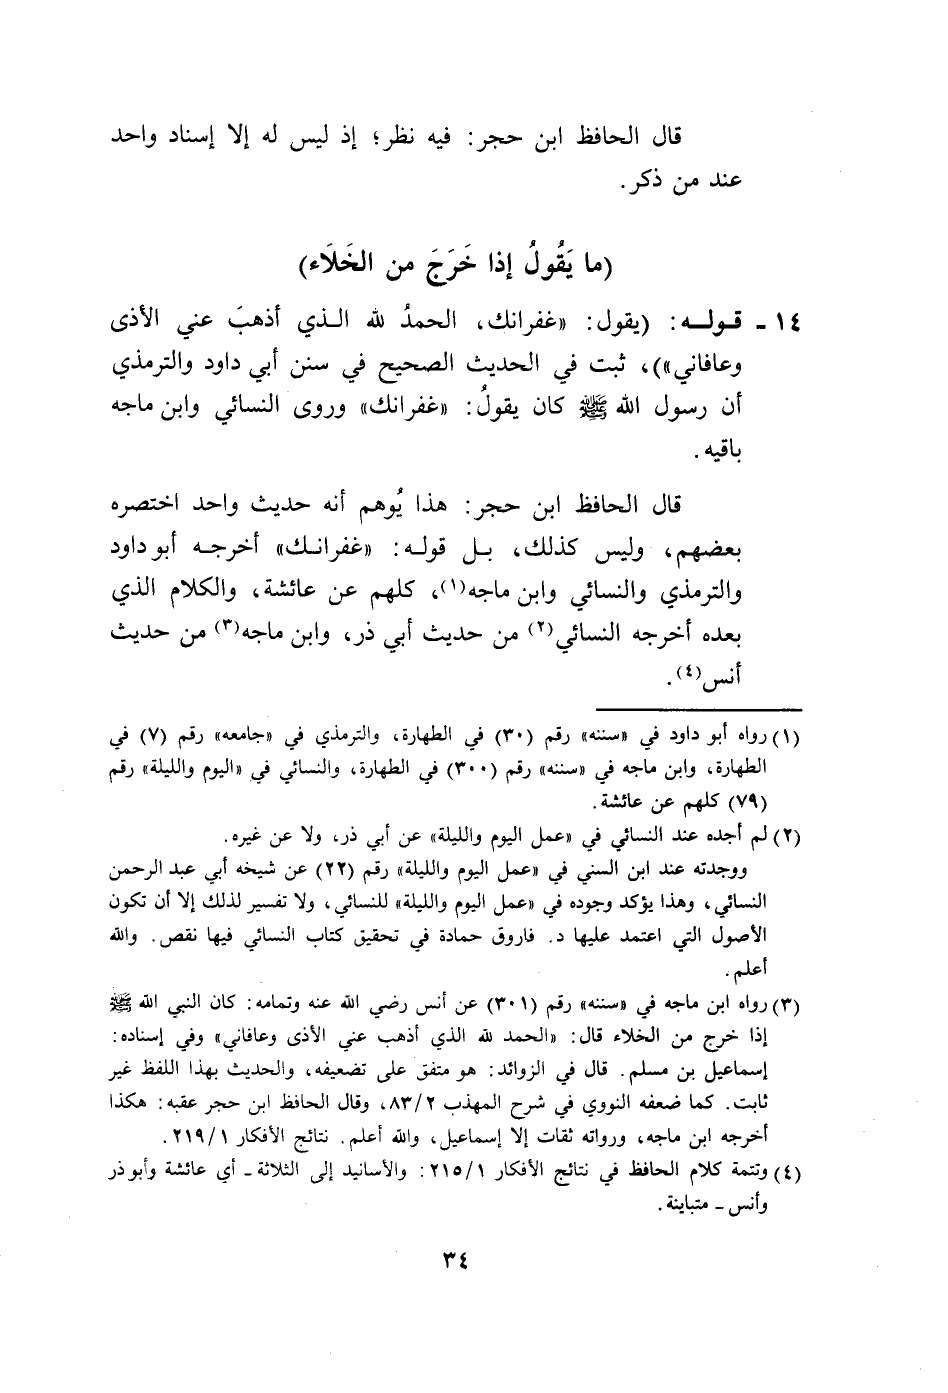 قال الحافظ ابن حجر: فيه نظر؛ إذ ليس له إلا إسناد واحد
عند من ذكر.
(ما يَقُولُ إذا خَرَجَ من الخَلَاء)
١٤ - قوله: (يقول: «غفرانك، الحمدُ لله الذي أذهبَ عني الأذى
وعافاني»)، ثبت في الحديث الصحيح في سنن أبي داود والترمذي
أن رسول الله ﷺ كان يقولُ: «غفرانك» وروى النسائي وابن ماجه
باقيه.
قال الحافظ ابن حجر: هذا يُوهم أنه حديث واحد اختصره
بعضهم، وليس كذلك، بل قوله: «غفرانك» أخرجه أبو داود
والترمذي والنسائي وابن ماجه(١)، كلهم عن عائشة، والكلام الذي
بعده أخرجه النسائي(٢) من حديث أبي ذر، وابن ماجه(٣) من حديث
أنس(٤).
(١) رواه أبو داود في «سننه» رقم (٣٠) في الطهارة، والترمذي في «جامعه» رقم (٧) في
الطهارة، وابن ماجه في «سننه» رقم (٣٠٠) في الطهارة، والنسائي في «اليوم والليلة» رقم
(٧٩) كلهم عن عائشة.
(٢) لم أجده عند النسائي في «عمل اليوم والليلة» عن أبي ذر، ولا عن غيره.
ووجدته عند ابن السني في «عمل اليوم والليلة» رقم (٢٢) عن شيخه أبي عبد الرحمن
النسائي، وهذا يؤكد وجوده في «عمل اليوم والليلة» للنسائي، ولا تفسير لذلك إلا أن تكون
الأصول التي اعتمد عليها د. فاروق حمادة في تحقيق كتاب النسائي فيها نقص. والله
أعلم.
(٣) رواه ابن ماجه في «سننه» رقم (٣٠١) عن أنس رضي الله عنه وتمامه: كان النبي الله ﷺ
إذا خرج من الخلاء قال: «الحمد لله الذي أذهب عني الأذى وعافاني» وفي إسناده:
إسماعيل بن مسلم. قال في الزوائد: هو متفق على تضعيفه، والحديث بهذا اللفظ غير
ثابت. كما ضعفه النووي في شرح المهذب ٨٣/٢، وقال الحافظ ابن حجر عقبه: هكذا
أخرجه ابن ماجه، ورواته ثقات إلا إسماعيل، والله أعلم. نتائج الأفكار ٢١٩/١.
(٤) وتتمة كلام الحافظ في نتائج الأفكار ٢١٥/١: والأسانيد إلى الثلاثة - أي عائشة وأبو ذر
وأنس - متباينة.
٣٤